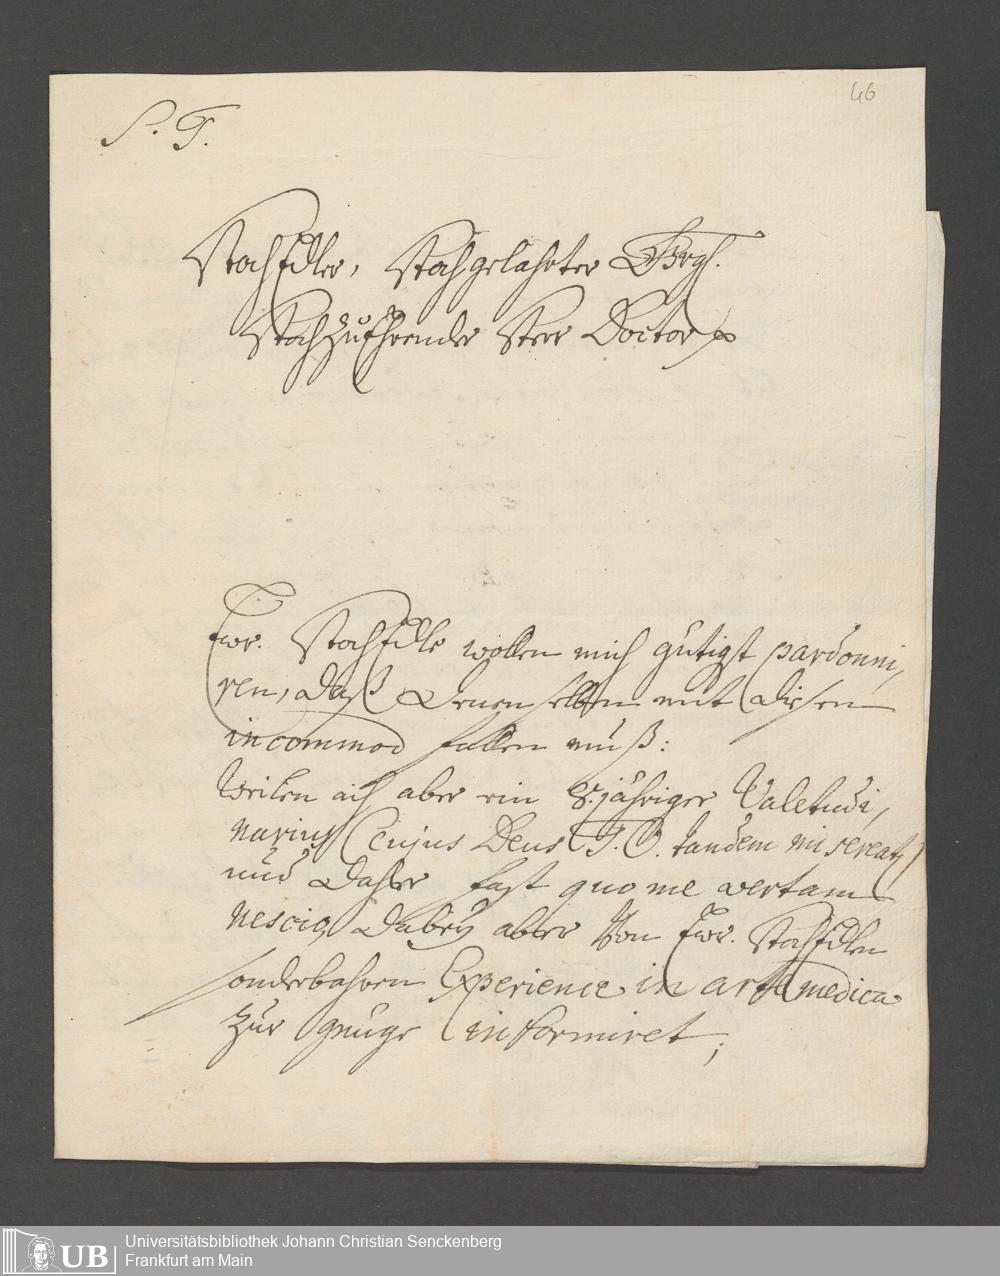 46
S. T.
HochEdler, Hochgelahrter
HochzuEhrender Herr Doctor
Ewr. HochEdle wollen mich gütigst pardonni,
ren, daß Denenselben mit diesen
incommod fallen muß:
Weilen ich aber ein 8.jähriger Valetudi,
narius (cujus Deus T. O. tandem misereatr)
und daher fast quo me vertam
nescio, dabey aber von Ewr. HochEdlen
sonderbahren Experience in arte medica
zur gnuge informiret;
UB
Universitätsbibliothek Johann Christian Senckenberg
Frankfurt am Main